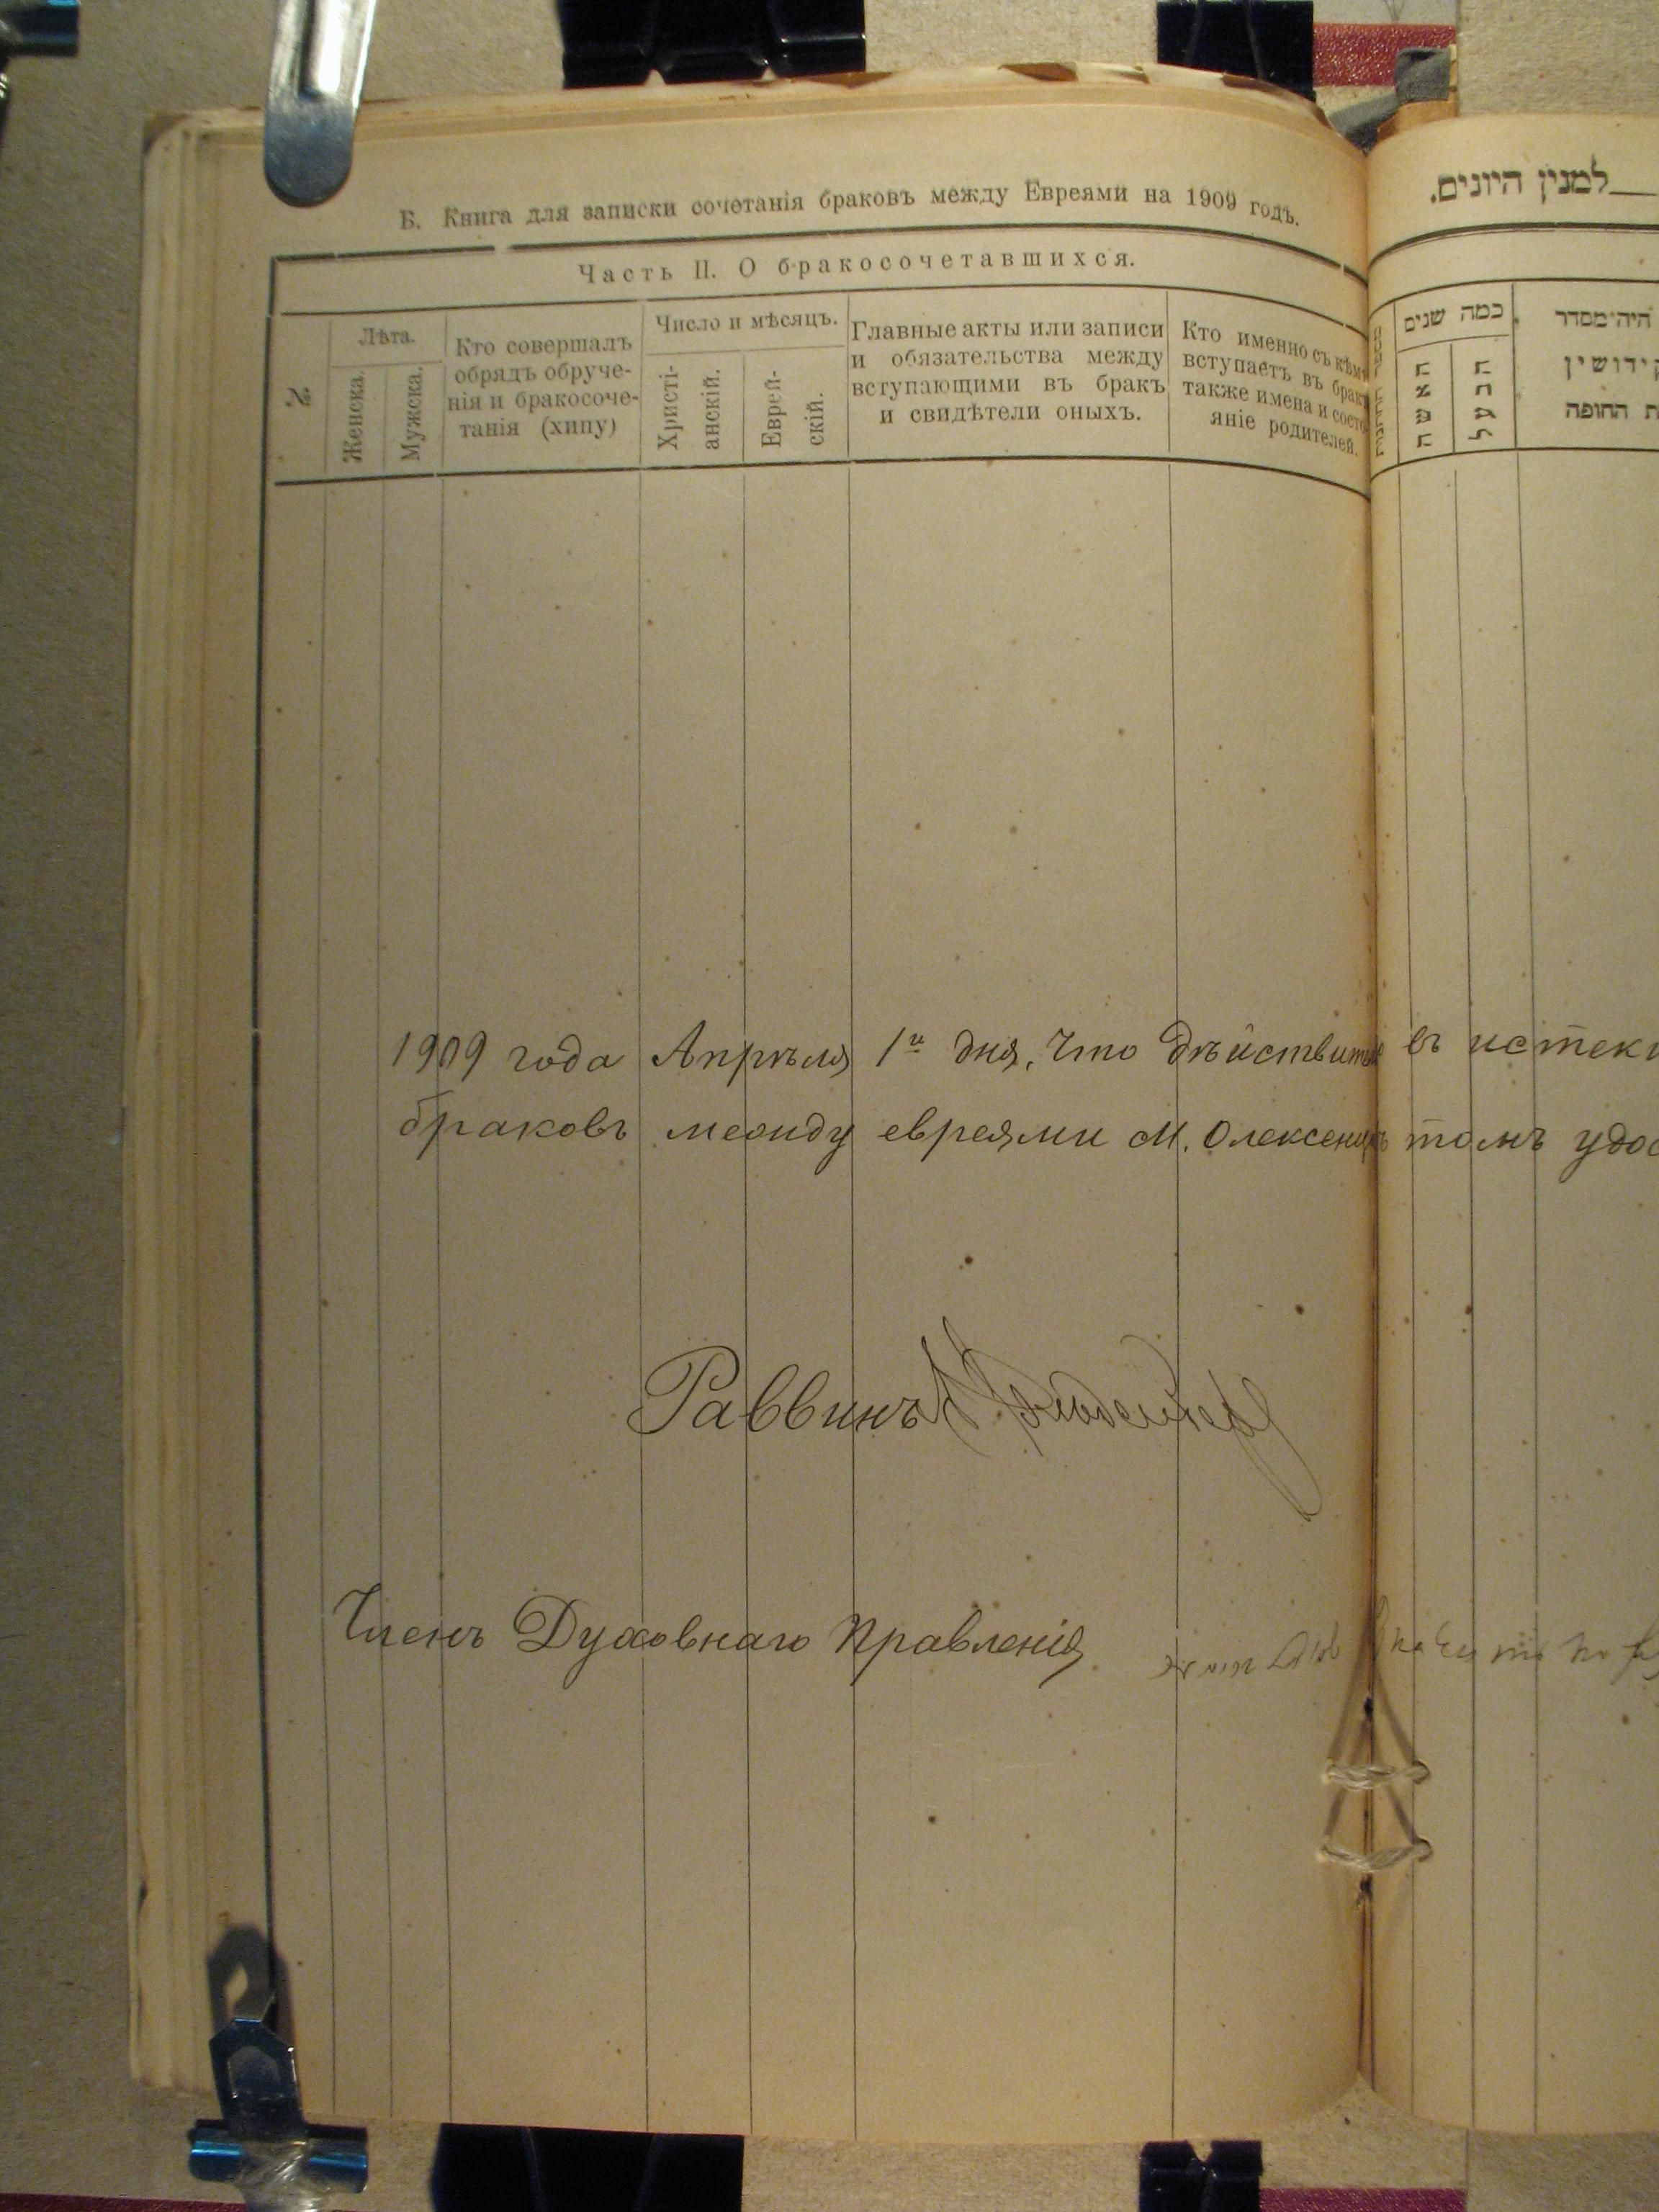 Б. Книга для записки сочетанія браковъ между Евреями на 1909 годъ.
Часть II. О бракосочетавшихся.
№
Лѣта.
Женска.
Мужска.
Кто совершалъ
обрядъ обруче-
нія и бракосоче-
танія (хипу)
Число и мѣсяцъ.
Христі-
анскій.
Еврей-
скій.
Главные акты или записи
и обязательства между
вступающими въ бракъ
и свидѣтели оныхъ.
Кто именно съ кѣмъ
вступаетъ въ бракъ
также имена и состо
яніе родителей.
למנין היונים.
כמה שנים
האשה
הבעל
היה מסדר
קידושין
ת החופה
1909 года Апрѣля 1го дня, Что дѣйствит въ истек
браковъ между евреями м. Олексен томъ удос
Раввинъ
Членъ Духовнаго Правленія